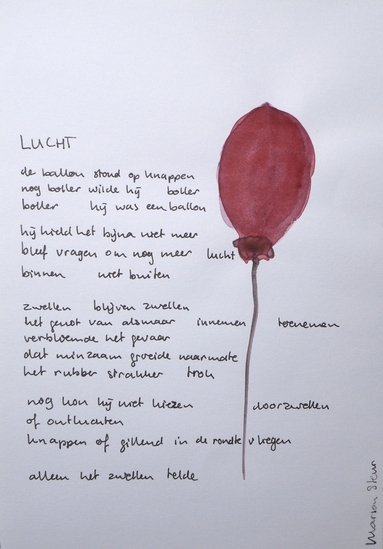 LUCHT
de ballon stond op knappen
nog boller wilde hij boller
boller hij was een ballon
hij hield het bijna niet meer
bleef vragen om nog meer lucht
binnen niet buiten
zwellen blijven zwellen
het genot van alsmaar innemen toenemen
verbloemde het gevaar
dat minzaam groeide naarmate
het rubber strakker trok
nog kon hij niet kiezen doorzwellen
of ontluchten
knappen of gillend in de rondte vliegen
alleen het zwellen telde
Marion Steur